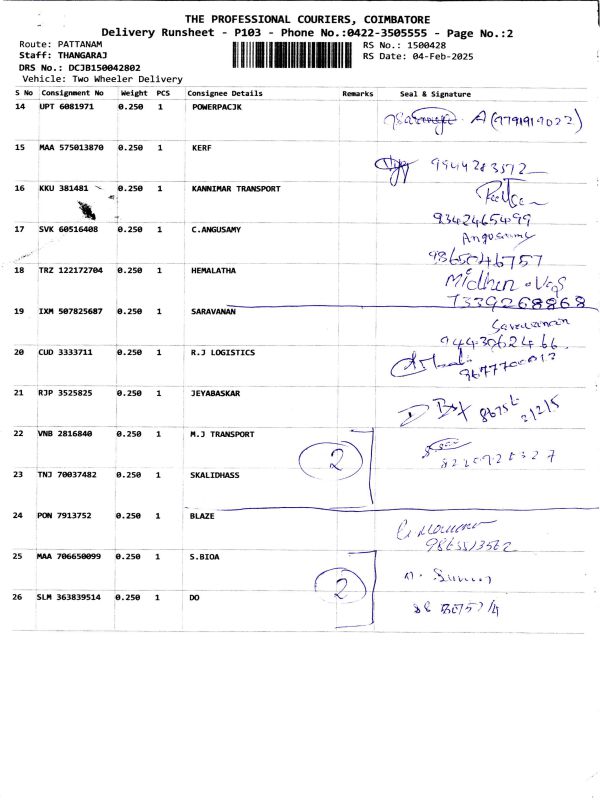 THE PROFESSIONAL COURIERS, COIMBATORE
Delivery Runsheet - P103 - Phone No.:0422-3505555 - Page No.:2
Route: PATTANAM
RS No.: 1500428
Staff: THANGARAJ
RS Date: 04-Feb-2025
DRS No.: DCJB150042802
Vehicle: Two Wheeler Delivery
S No Consignment No Weight PCS Consignee Details Remarks Seal & Signature
14 UPT 6081971 0.250 1 POWERPACJK
A (9791919022)
15 MAA 575013870 0.250 1 KERF
9944283572
16 KKU 381481 0.250 1 KANNIMAR TRANSPORT
9342465499
17 SVK 60516408 0.250 1 C.ANGUSAMY Angusamy
9865046757
18 TRZ 122172704 0.250 1 HEMALATHA
7339268868
19 IXM 507825687 0.250 1 SARAVANAN
Saravanan
20 CUD 3333711 0.250 1 R.J LOGISTICS
21 RJP 3525825 0.250 1 JEYABASKAR
22 VNB 2816840 0.250 1 M.J TRANSPORT
2
23 TNJ 70037482 0.250 1 SKALIDHASS
24 PON 7913752 0.250 1 BLAZE
25 MAA 706650099 0.250 1 S.BIOA
2
26 SLM 363839514 0.250 1 DO